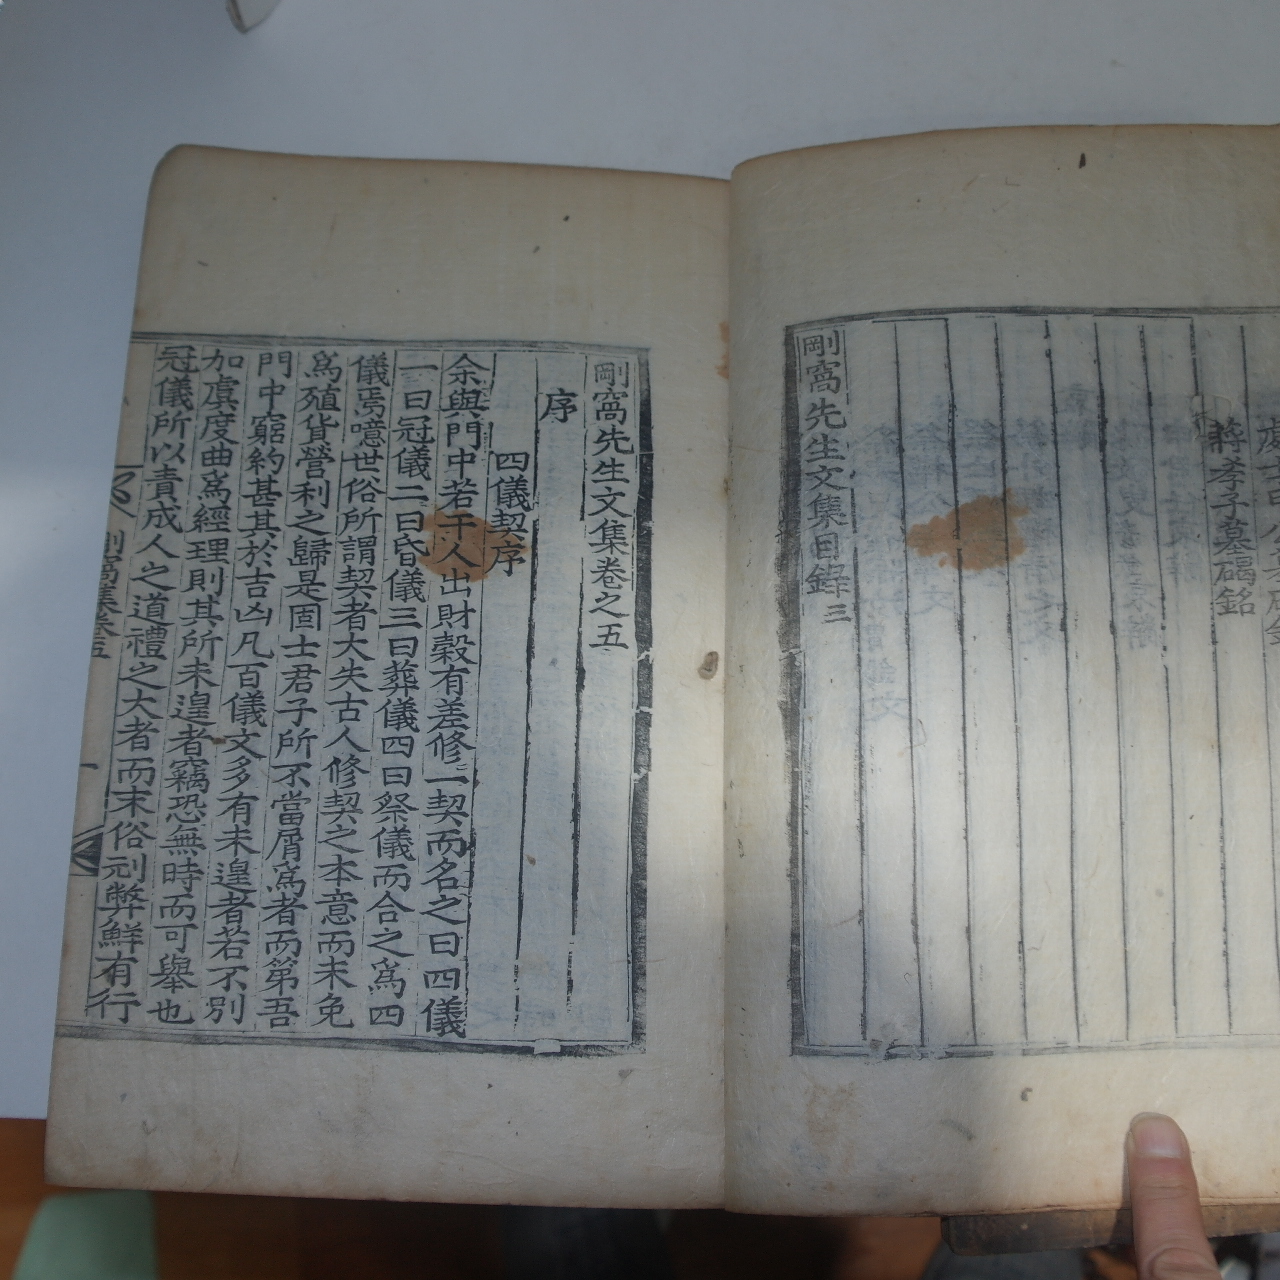 蔣孝子墓碣銘
剛窩先生文集目錄三
剛窩先生文集卷之五
序
四儀契序
余與門中若干人出財穀有差修一契而名之曰四儀
一曰冠儀二曰昏儀三曰葬儀四曰祭儀而合之爲四
儀焉噫世俗所謂契者大失古人修契之本意而未免
爲殖貨營利之歸是固士君子所不當屑爲者而第吾
門中窮約甚其於吉凶凡百儀文多有未遑者若不別
加虞度曲爲經理則其所未遑者竊恐無時而可擧也
冠儀所以責成人之道禮之大者而末俗刓弊鮮有行
剛窩集卷五
一